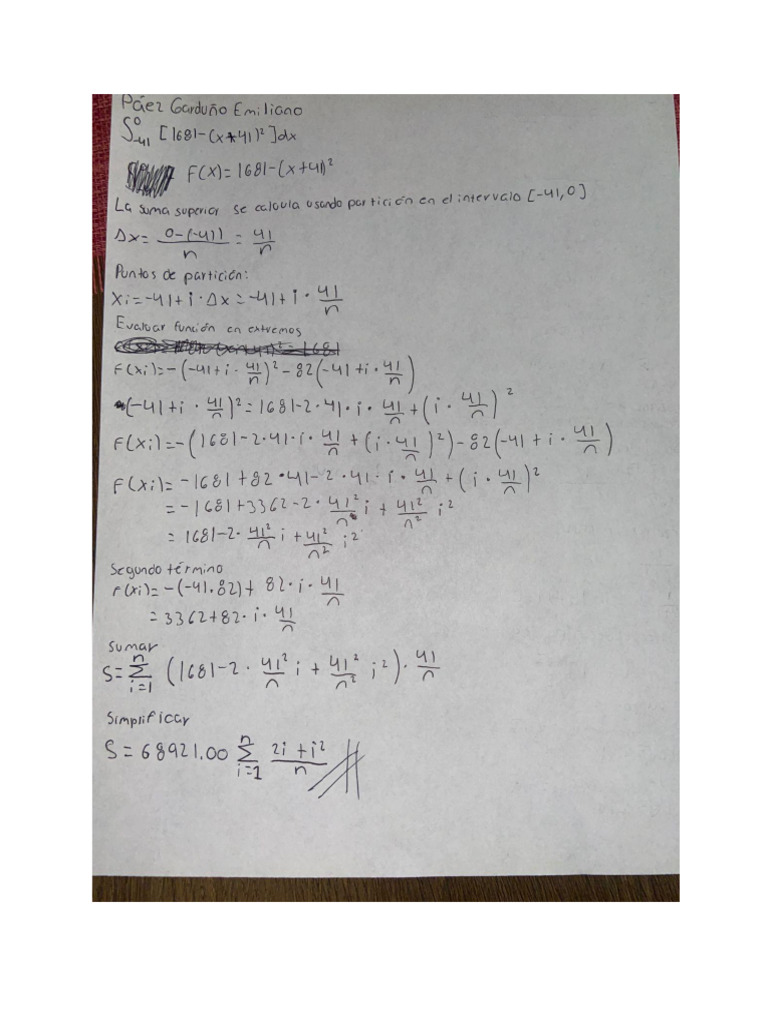 Páez Garduño Emiliano
∫₋₄₁⁰ [1681-(x+41)²]dx
F(x)=1681-(x+41)²
La suma superior se calcula usando partición en el intervalo [-41,0]
Δx= 0-(-41)/n = 41/n
Puntos de partición:
Xi=-41+i·Δx=-41+i·41/n
Evaluar función en extremos
F(xi)=-(-41+i·41/n)²-82(-41+i·41/n)
(-41+i·41/n)²=1681-2·41·i·41/n+(i·41/n)²
F(xi)=-(1681-2·41·i·41/n+(i·41/n)²)-82(-41+i·41/n)
F(xi)=-1681+82·41-2·41·i·41/n+(i·41/n)²
=-1681+3362-2·41²/n i+41²/n² i²
=1681-2·41²/n i+41²/n² i²
Segundo término
F(xi)=-(-41·82)+82·i·41/n
=3362+82·i·41/n
Sumar
S=Σ i=1 n (1681-2·41²/n i+41²/n² i²)·41/n
Simplificar
S=68921.00 Σ i=1 n 2i+i²/n